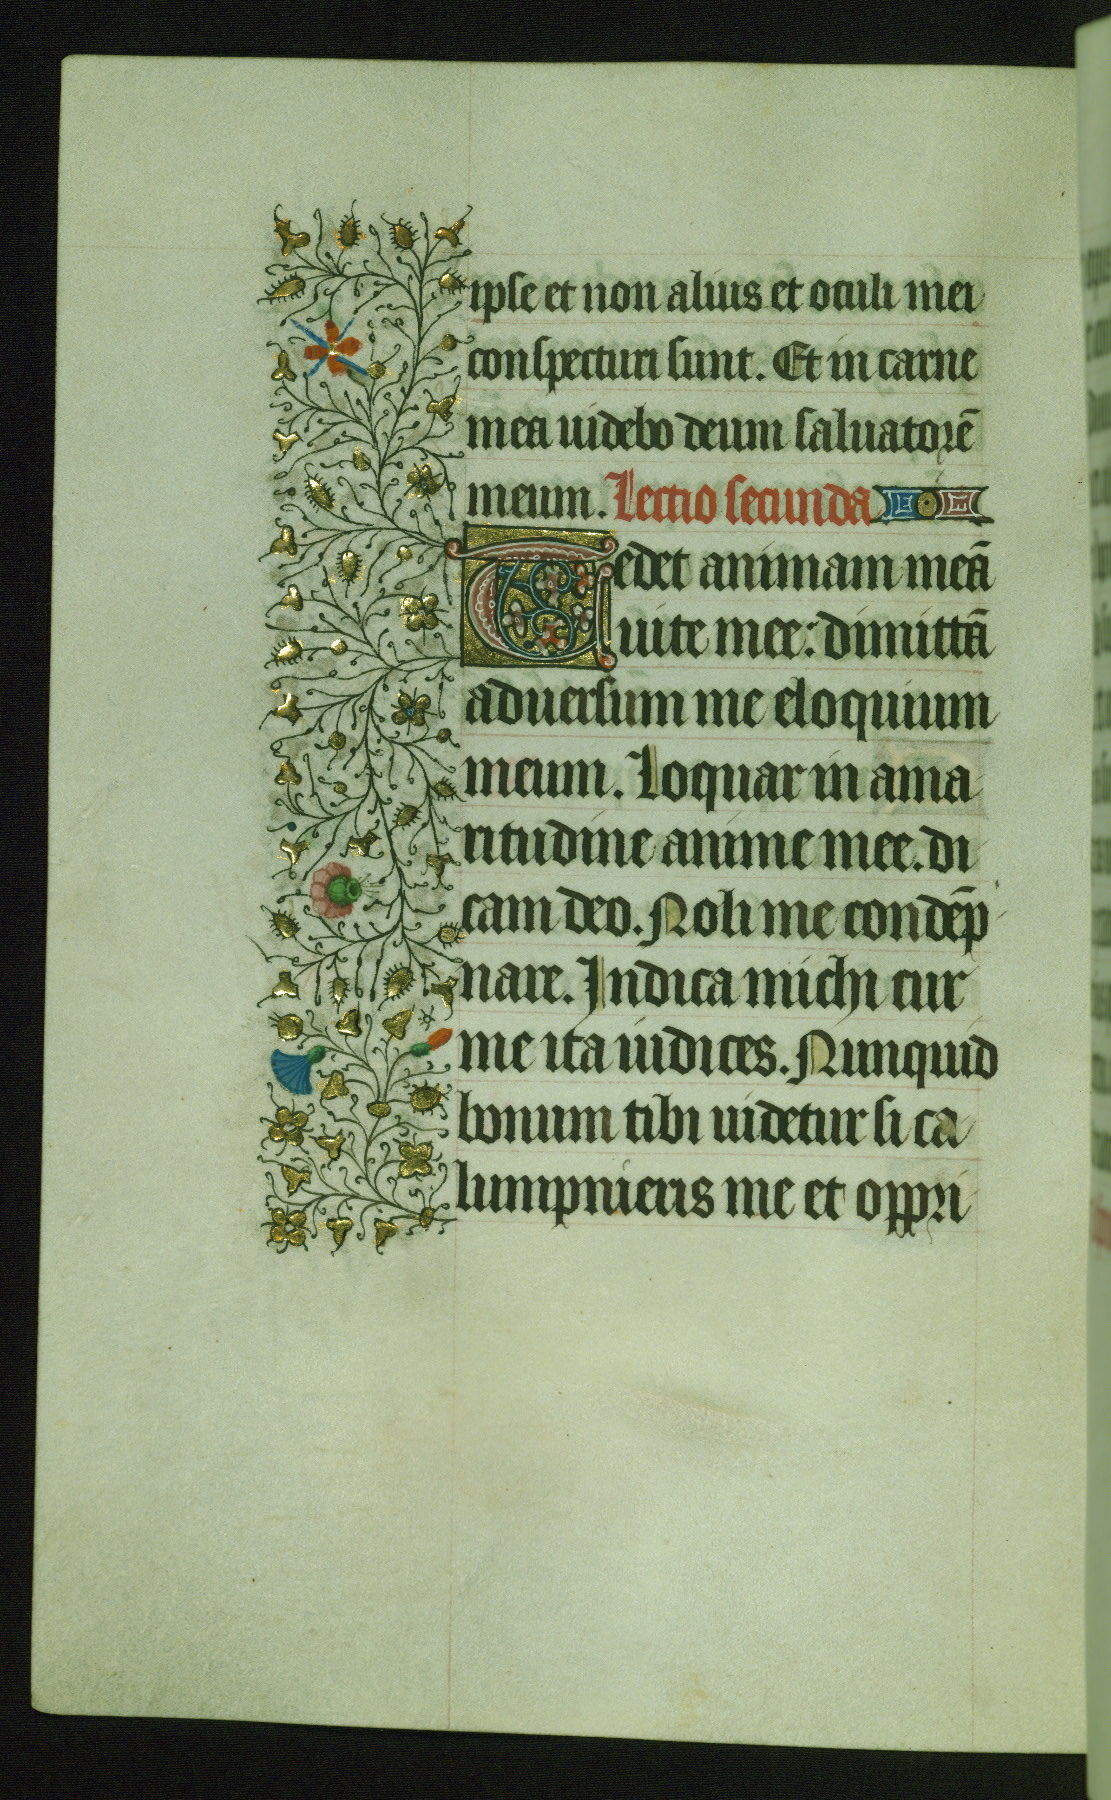 ipse et non alius et oculi mei
conspecturi sunt. Et in carne
mea uidebo deum saluatorē
meum. Lectio secunda
Tedet animam meā
uite mee: dimittā
aduersum me eloquium
meum. Loquar in ama
ritudine anime mee. di
cam deo. Noli me condēp
nare. Indica michi cur
me ita iudices. Nunquid
bonum tibi uidetur si ca
lumpnieris me et oppri